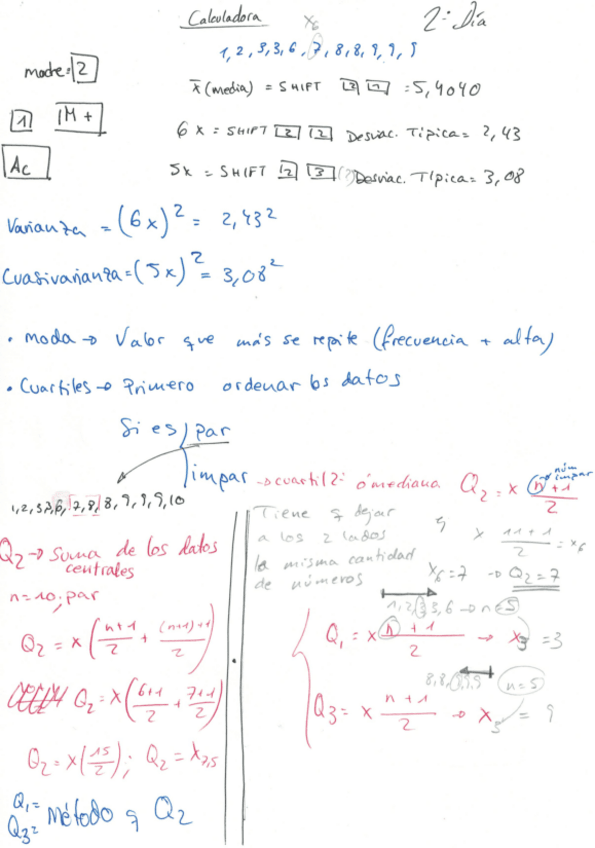 Calculadora
x6
2º Día
1, 2, 3, 3, 6, 7, 8, 8, 9, 9, 9
mode = 2
x̄ (media) = SHIFT 2 1 = 5,4040
1 M+
6x = SHIFT 2 2 Desviac. Típica = 2,43
AC
5x = SHIFT 2 3 Desviac. Típica = 3,08
Varianza = (6x)² = 2,43²
Cuasivarianza = (5x)² = 3,08²
• Moda → Valor que más se repite (frecuencia + alta)
• Cuartiles → Primero ordenar los datos
Si es par
impar → cuartil 2º ó mediana Q2 = x n+1/2
núm impar
1, 2, 3, 3, 6, 7, 8, 8, 9, 9, 9, 10
Q2 → Suma de los datos
centrales
n = 10; par
Q2 = x (n+1/2 + (n+1)+1/2)
Q2 = x (6+1/2 + 7+1/2)
Q2 = x (15/2); Q2 = x7,5
Q1 =
Q3 = método q Q2
Tiene q dejar
a los 2 lados
la misma cantidad
de números
x 11+1/2 = x6
x6 = 7 → Q2 = 7
1, 2, 3, 3, 6 → n = 5
Q1 = x n+1/2 → x3 = 3
8, 8, 9, 9, 9 n = 5
Q3 = x n+1/2 → x3 = 9